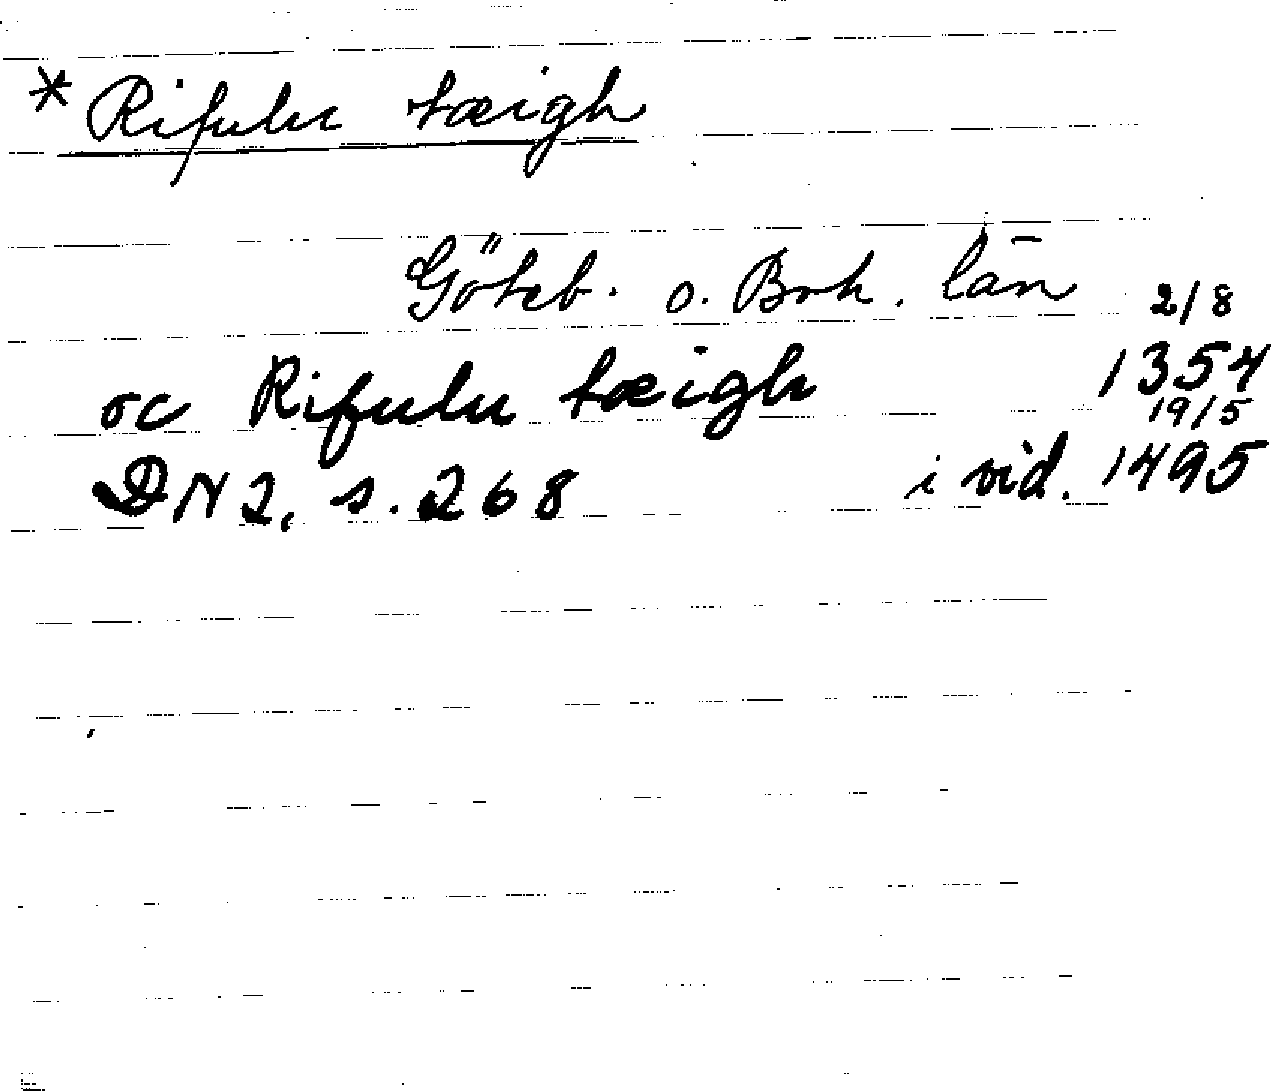 * Rifulu tæigh
Göteb. o. Boh. län
2/8
oc Rifulu tæigh 1354
19/5
DN 2, s. 268 i vid. 1495